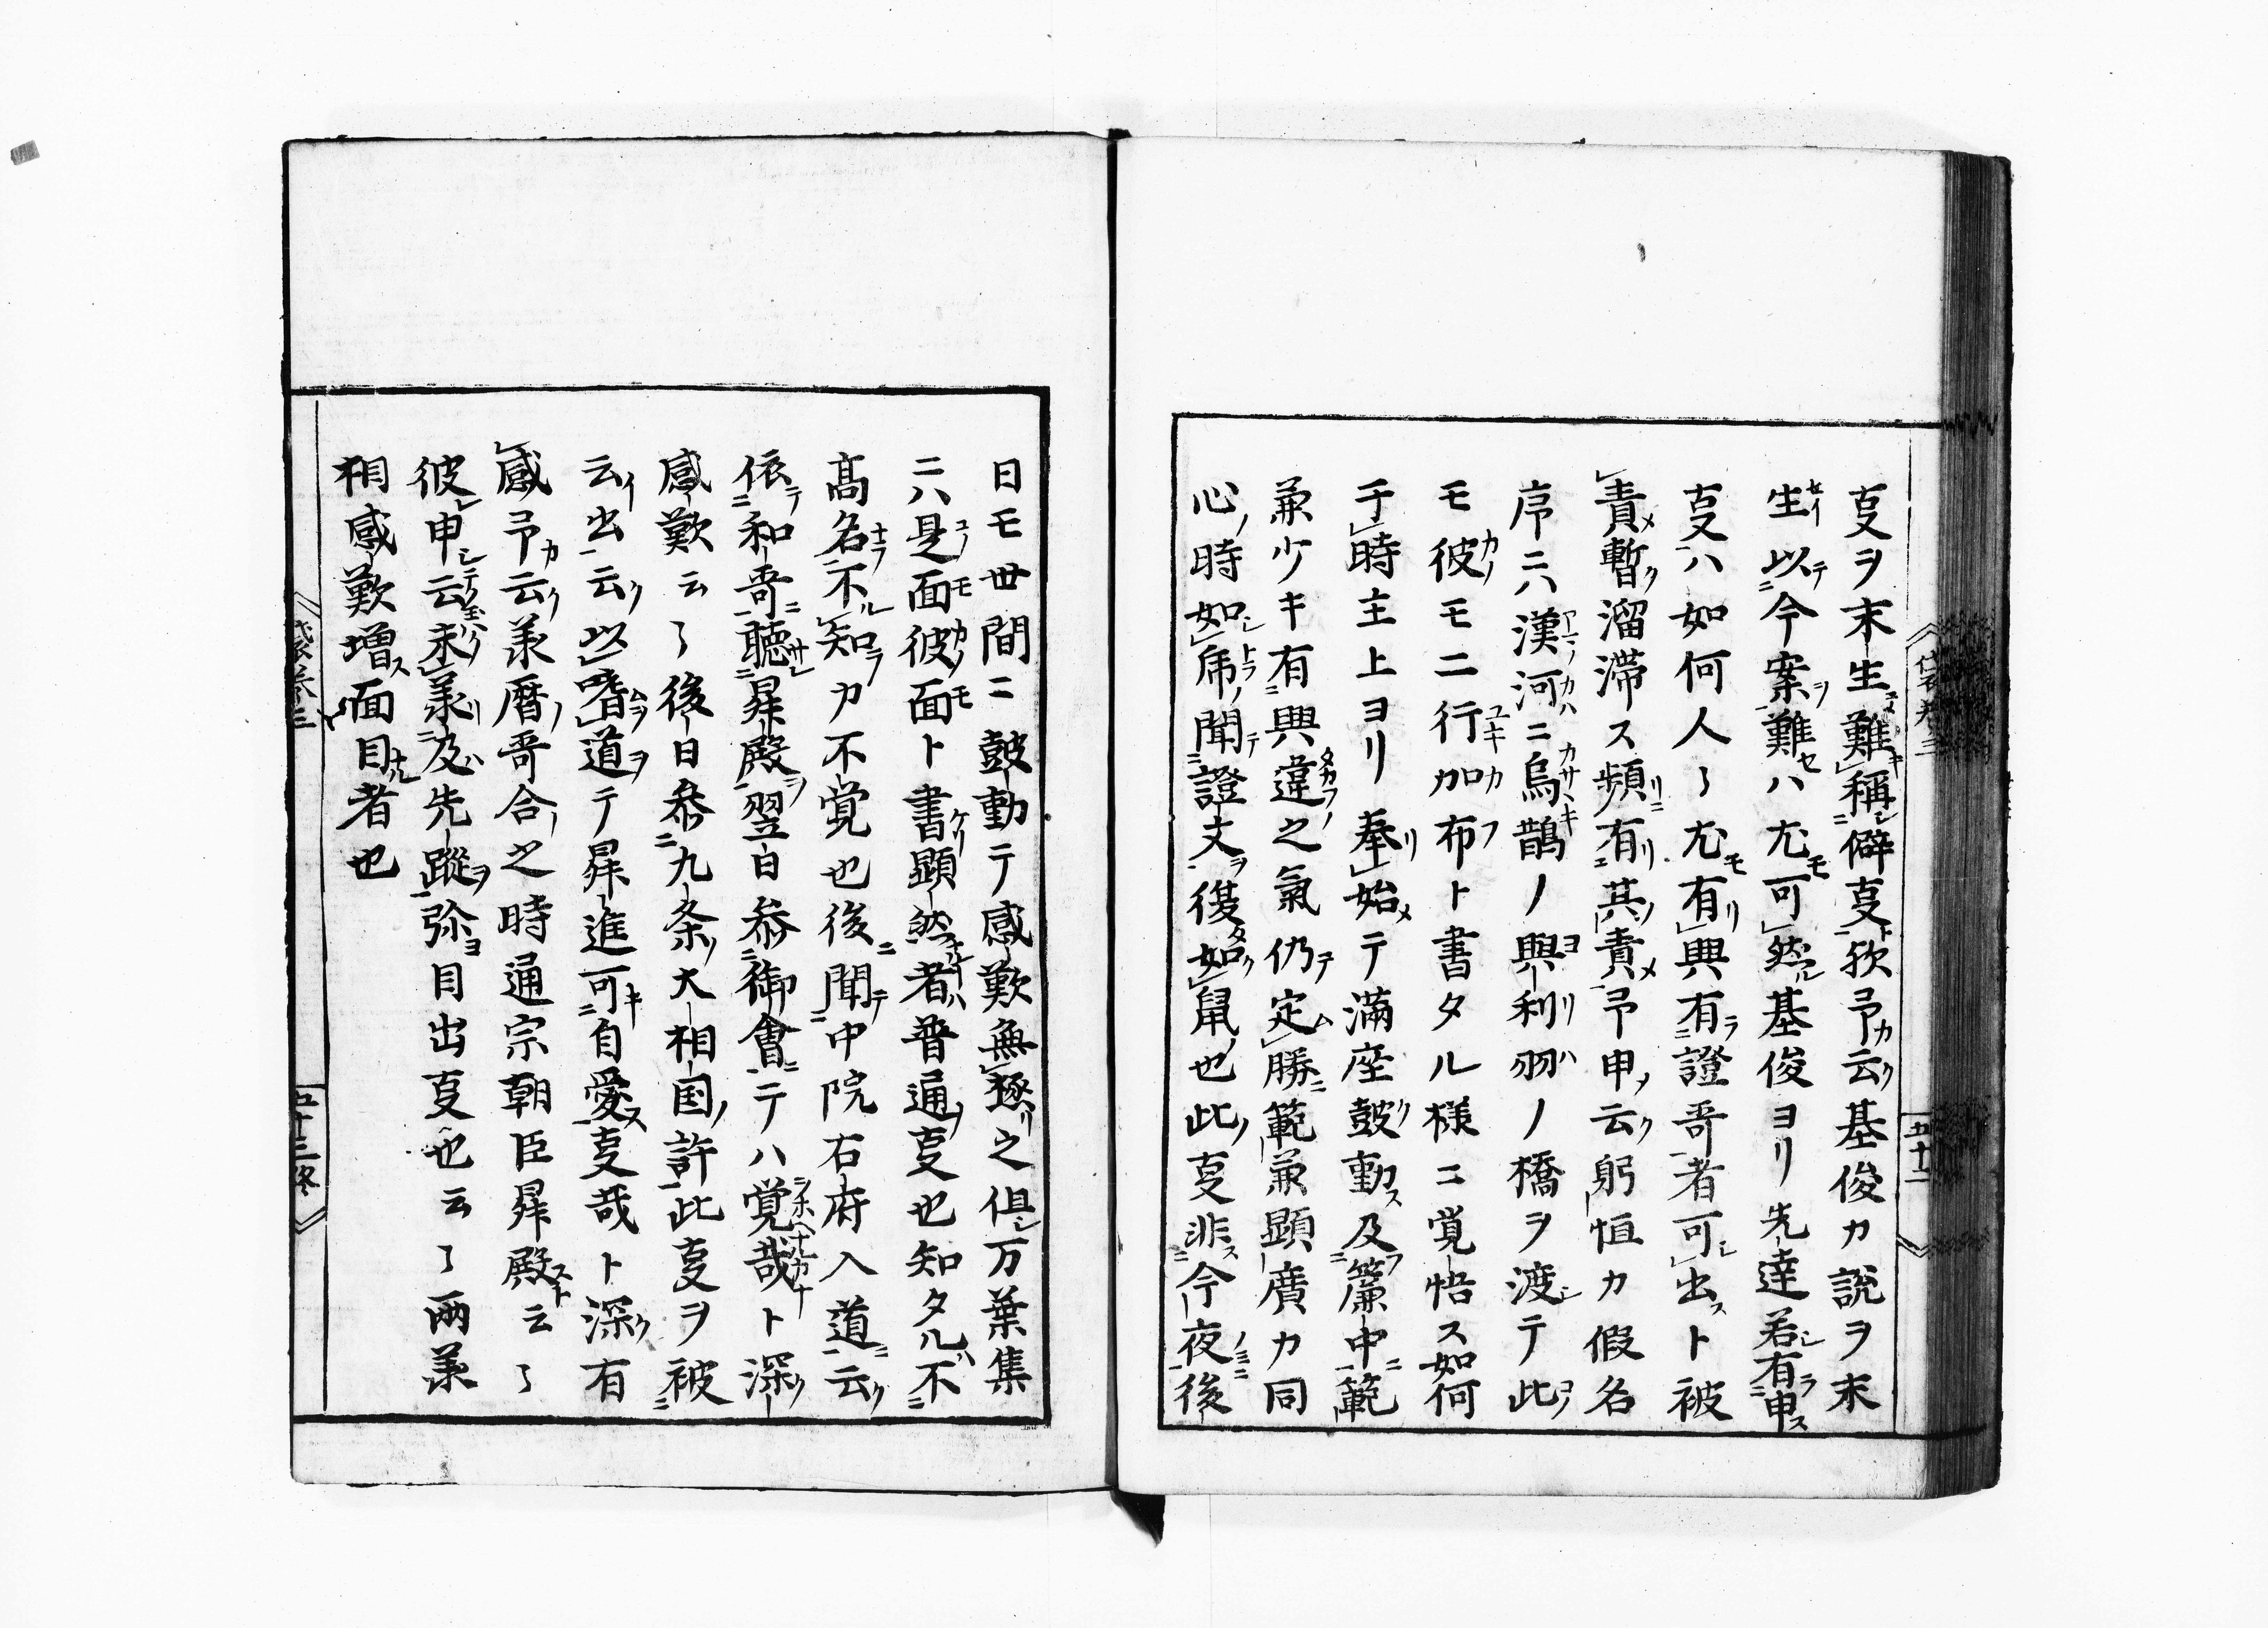 袋巻三
五十二
亊ヲ末生難キ稱シ僻亊ト欤予カ云ク基俊カ説ヲ末
生以テ今案ヲ難セハ尤モ可然ル基俊ヨリ先達若シ有ラ申ス
亊ハ如何人々尤モ有リ興有ラ證哥者可シ出スト被
責メ暫ク溜滞ス頻リニ有リ其ノ責メ予申ノ云ク躬恒カ假名
序ニハ漢河ニ烏鵲ノ與利羽ノ橋ヲ渡シテ此ヲ
モ彼モ二行加布ト書タル様ニ覚悟ス如何
于時主上ヨリ奉リ始メテ滿座皷動ス及フ簾中ニ範
兼少キ有興違フノ之氣仍テ定ム勝ニ範兼顕廣カ同
心ノ時如シ虎ノ聞テ證文ヲ後如ク鼠ノ也此ノ亊非ス今夜ノミニ後
日モ世間ニ皷動テ感歎無逐之倶シ万葉集
ニハ是面彼面ト書ケリ顕然者普通ノ亊也知タルハ不
髙名ナラ不ル知ラカ不覚也後ニ聞テ中院右府入道ニ云ク
依テ和哥ニ聴サレ昇殿ヲ翌日参御會ニテハ覚哉ト深ク
感歎云々後日参九条ノ大相国ノ許此亊ヲ被
云イ出云ク以嗜ムヲ道ヲテ昇進可キ自愛ス亊哉ト深ク有
感予カ云ク兼暦ノ哥合ノ之時通宗朝臣昇殿スト云々
彼レ申シテ云ク未至ラノ兼リ及ハ先蹤ヲ弥ヨ目出亊也云々兩兼
相感歎増ス面目ナル者也
袋巻三
五十三終